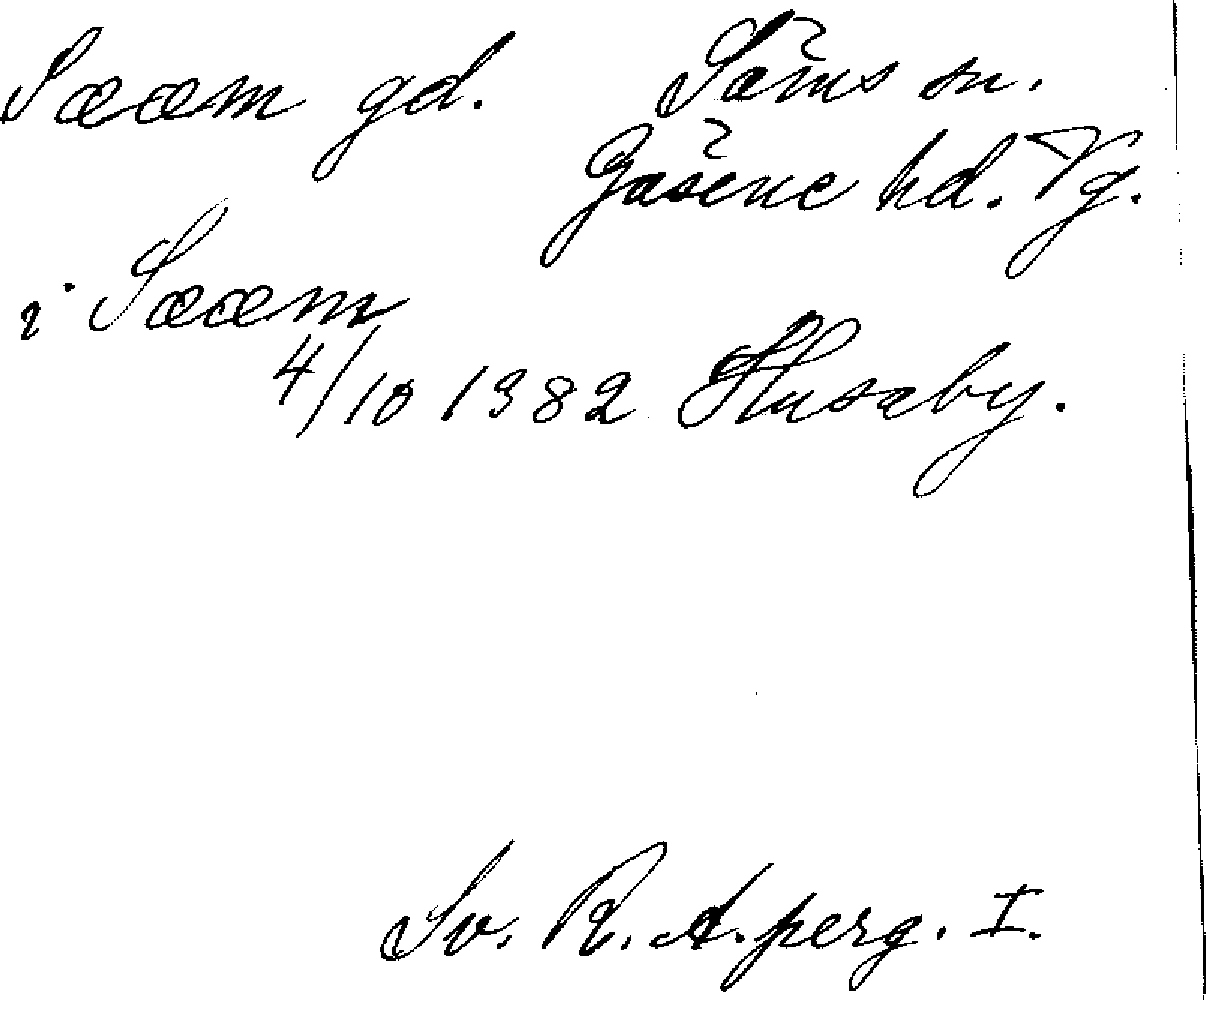 Sææm gd. Säms sn.
Gäsene hd. Vg.
i Sææm
4/10 1382 Husaby.
Sv. R. A. perg. I.